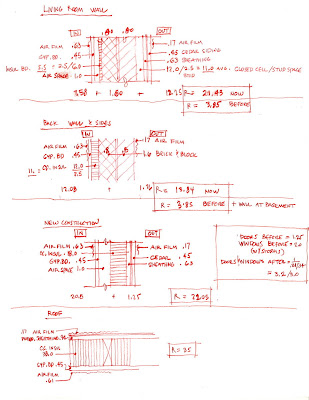 LIVING ROOM WALL
IN .80 .80 OUT
AIR FILM .63
GYP. BD. .45
INSUL BD. 2.5/2.5/.60
AIR SPACE 1.0
.17 AIR FILM
.55 CEDAR SIDING
.63 SHEATHING
12.0/2.5 = 11.0 AVG. CLOSED CELL/STUD SPACE
STUD
3.58 + 1.80 + 12.25
R = 21.43 NOW
R = 3.85 BEFORE
BACK WALL & SIDES
IN OUT
AIR FILM .63
GYP. BD .45
CC. INSUL 11.0
2.5
.17 AIR FILM
1.6 BRICK & BLOCK
12.08 +
R = 18.84 NOW
R = 3.85 BEFORE + WALL AT BASEMENT
NEW CONSTRUCTION
IN OUT
AIR FILM .63
CC. INSUL 18.0
GYP. BD. .45
AIR SPACE 1.0
AIR FILM .17
CEDAR .45
SHEATHING .63
20.8 + 1.25
R = 22.05
DOORS BEFORE = 1.25
WINDOWS BEFORE = 2.0
(W/STORMS)
DOORS/WINDOWS AFTER =
= 3.2/3.0
ROOF
.17 AIR FILM
CC INSUL
GYP. BD .45
AIR FILM
.61
R = 35